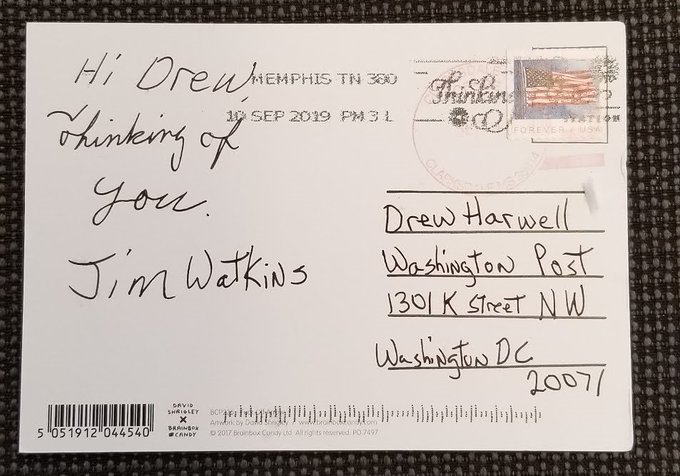 Hi Drew,
Thinking of
you.
Jim Watkins
MEMPHIS TN 380
10 SEP 2019 PM 3 L
Thinking
FOREVER / USA
STATION
CLARKSDALE MS
Drew Harwell
Washington Post
1301 K Street NW
Washington DC
20071
5 051912 044540
DAVID
SHRIGLEY
X
BRAINBOX
CANDY
Artwork by David Shrigley / www.brainboxcandy.com
© 2017 Brainbox Candy Ltd All rights reserved. PO 7497